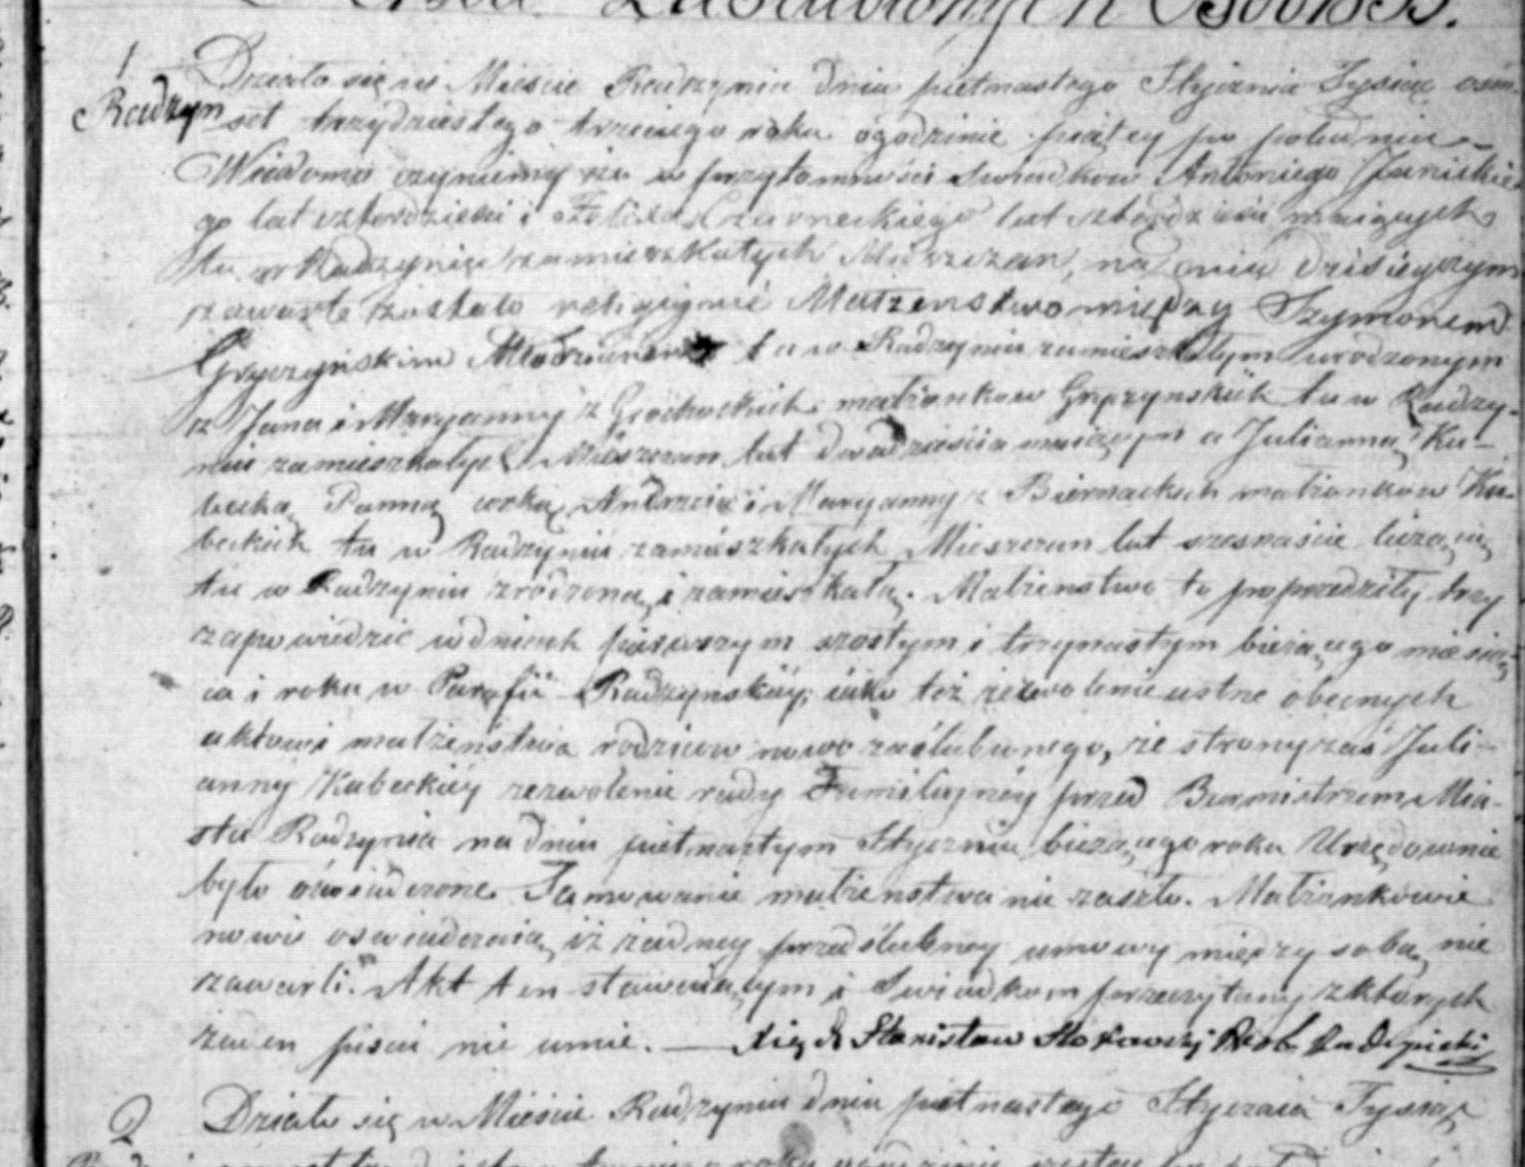 Zaślubionych Osób 1833.
1 Działo się w Mieście Radzyniu dnia piętnastego Stycznia Tysiąc ośm-
Radzyn set trzydziestego trzeciego roku o godzinie piątey po południu
Wiadomo czyniemy że w przytomności Swiadkow Antoniego Janickie-
go lat czterdzieści i Felixa Czarneckiego lat czterdzieści maiących
tu w Radzyniu zamieszkałych Mieszczan, na dniu dzisieyszym
zawarte zostało religiynie Małżenstwo między Szymonem
Gryczyńskim Młodzianem tu w Radzyniu zamieszkałym urodzonym
z Jana i Maryanny z Grochockich małżonkow Gryczynskich tu w Radzy-
niu zamieszkałych Mieszczan lat dwadzieścia maiącym a Julianną Ku-
becką Panną corką Andrzeia i Maryanny z Biernackich małżonkow Ku-
beckich tu w Radzyniu zamieszkałych Mieszczan lat szesnaście liczącą
tu w Radzyniu zrodzoną i zamieszkałą. Małżenstwo to poprzedziły trzy
zapowiedzie w dniach pierwszym szostym i trzynastym bieżącego miesią-
ca i roku w Parafii Radzynskiey, iako też zezwolenie ustne obecnych
aktowi małżeństwa rodzicow nowo zaślubionego, ze strony zaś Juli-
anny Kubeckiey zezwolenie rady Familiyney przed Burmistrzem Mia-
sta Radzynia na dniu piętnastym Stycznia bieżącego roku Urzędownie
było oświadczone. Tamowanie małżenstwa nie zaszło. Małżonkowie
nowi oswiadczaią iż żadney przedślubney umowy między sobą nie
zawarli. Akt ten stawaiącym i Swiadkom przeczytany z ktorych
żaden pisać nie umie. — Xiądz Stanisław Radzyński
2 Działo się w Mieście Radzyniu dnia piętnastego Stycznia Tysiąc